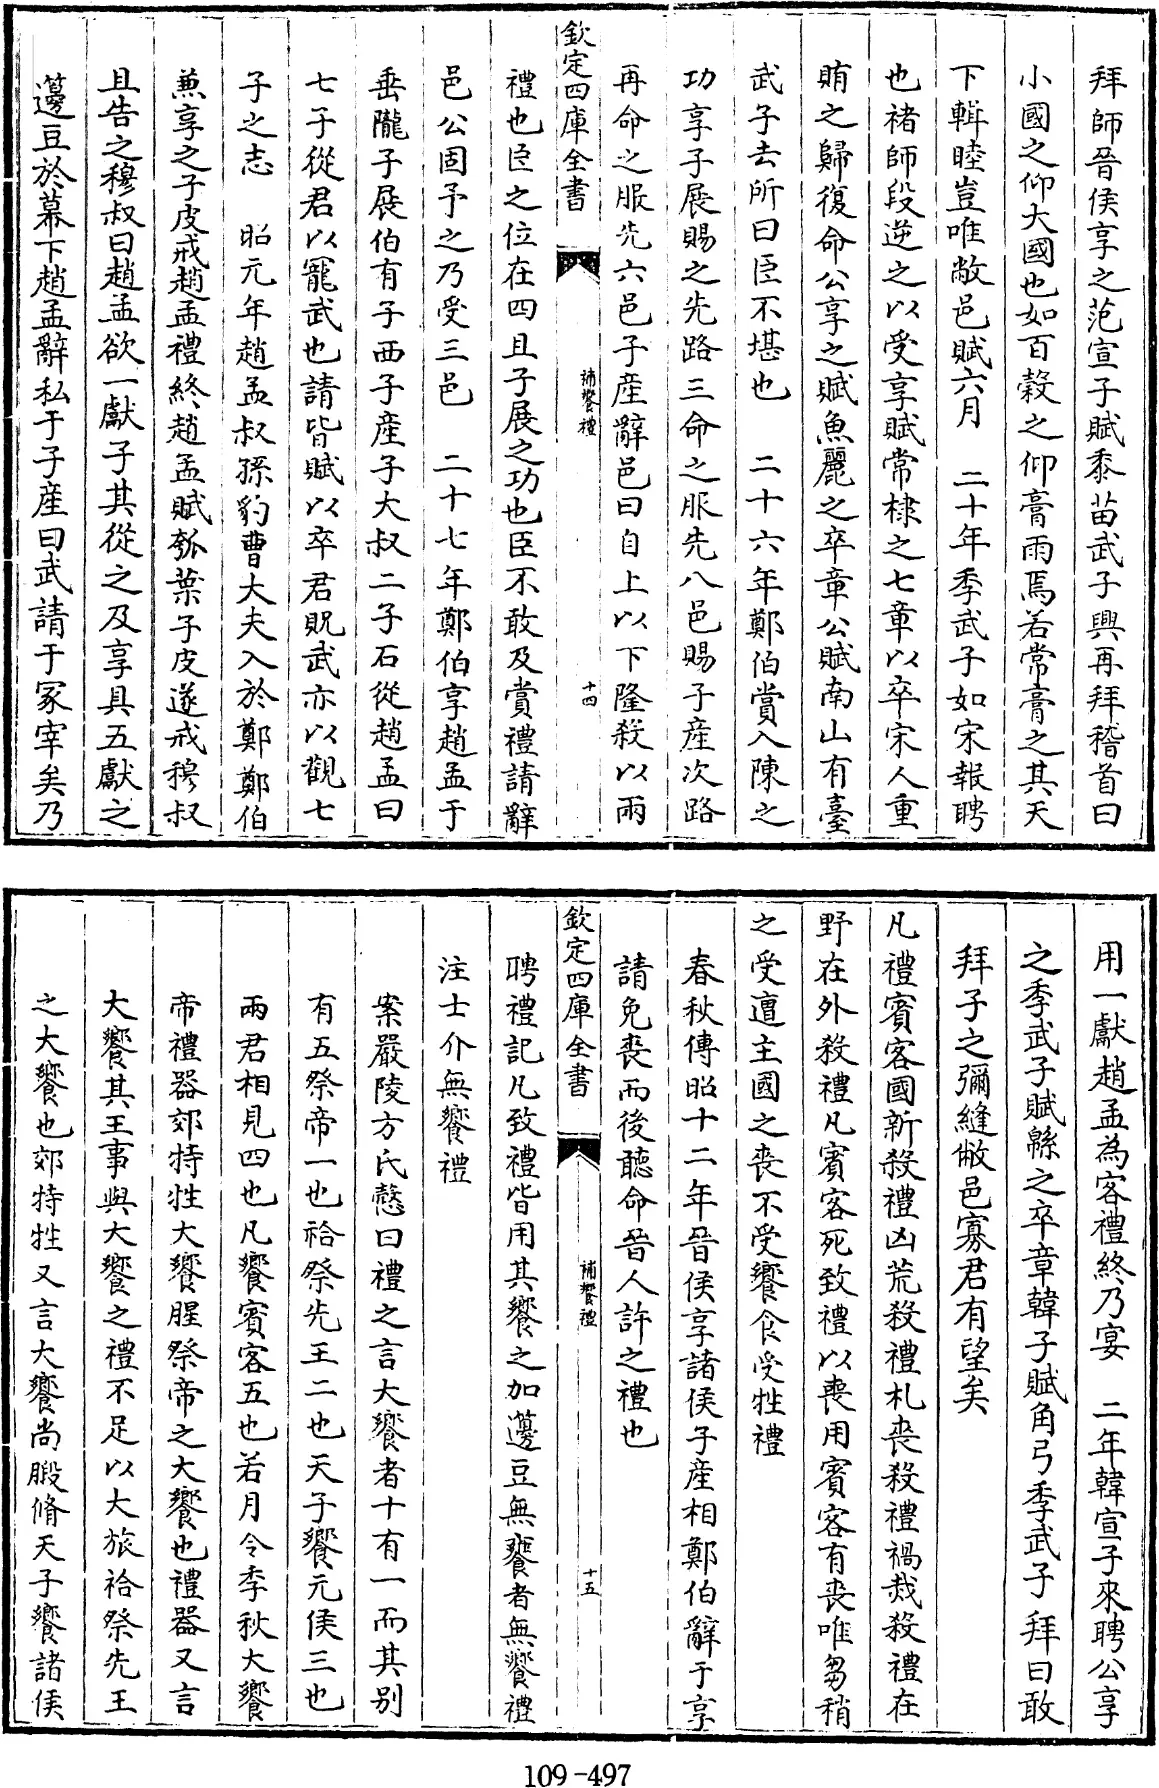 拜師晉侯享之范宣子賦黍苗武子興再拜稽首曰
小國之仰大國也如百穀之仰膏雨焉若常膏之其天
下輯睦豈唯敝邑賦六月　二十年季武子如宋報聘
也褚師段逆之以受享賦常棣之七章以卒宋人重
賄之歸復命公享之賦魚麗之卒章公賦南山有臺
武子去所曰臣不堪也　二十六年鄭伯賞入陳之
功享子展賜之先路三命之服先八邑賜子產次路
再命之服先六邑子產辭邑曰自上以下隆殺以兩
欽定四庫全書
補饗禮
十四
禮也臣之位在四且子展之功也臣不敢及賞禮請辭
邑公固予之乃受三邑　二十七年鄭伯享趙孟于
垂隴子展伯有子西子產子大叔二子石從趙孟曰
七子從君以寵武也請皆賦以卒君貺武亦以觀七
子之志　昭元年趙孟叔孫豹曹大夫入於鄭鄭伯
兼享之子皮戒趙孟禮終趙孟賦瓠葉子皮遂戒穆叔
且告之穆叔曰趙孟欲一獻子其從之及享具五獻之
籩豆於幕下趙孟辭私于子產曰武請于冢宰矣乃
用一獻趙孟為客禮終乃宴　二年韓宣子來聘公享
之季武子賦緜之卒章韓子賦角弓季武子拜曰敢
拜子之彌縫敝邑寡君有望矣
凡禮賓客國新殺禮凶荒殺禮札喪殺禮禍烖殺禮在
野在外殺禮凡賓客死致禮以喪用賓客有喪唯芻稍
之受遭主國之喪不受饗食受牲禮
春秋傳昭十二年晉侯享諸侯子產相鄭伯辭于享
請免喪而後聽命晉人許之禮也
欽定四庫全書
補饗禮
十五
聘禮記凡致禮皆用其饗之加籩豆無饔者無饗禮
注士介無饗禮
案嚴陵方氏慤曰禮之言大饗者十有一而其別
有五祭帝一也祫祭先王二也天子饗元侯三也
兩君相見四也凡饗賓客五也若月令季秋大饗
帝禮器郊特牲大饗腥祭帝之大饗也禮器又言
大饗其王事與大饗之禮不足以大旅祫祭先王
之大饗也郊特牲又言大饗尚腶脩天子饗諸侯
109-497